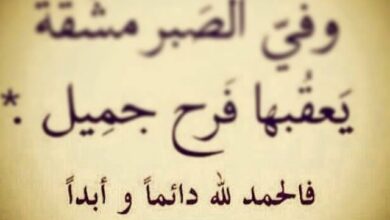 وفيّ الصَبر مشقة
يَعقُبها فَرح جمِيل .*
فالحمد لله دائماً و أبداً